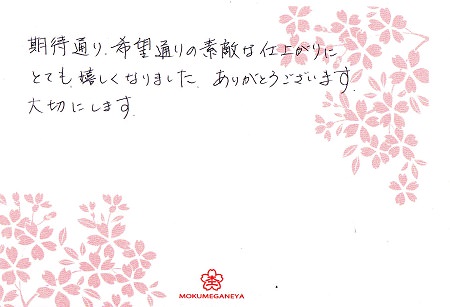 期待通り、希望通りの素敵な仕上がりに
とても嬉しくなりました。ありがとうございます。
大切にします。
MOKUMEGANEYA